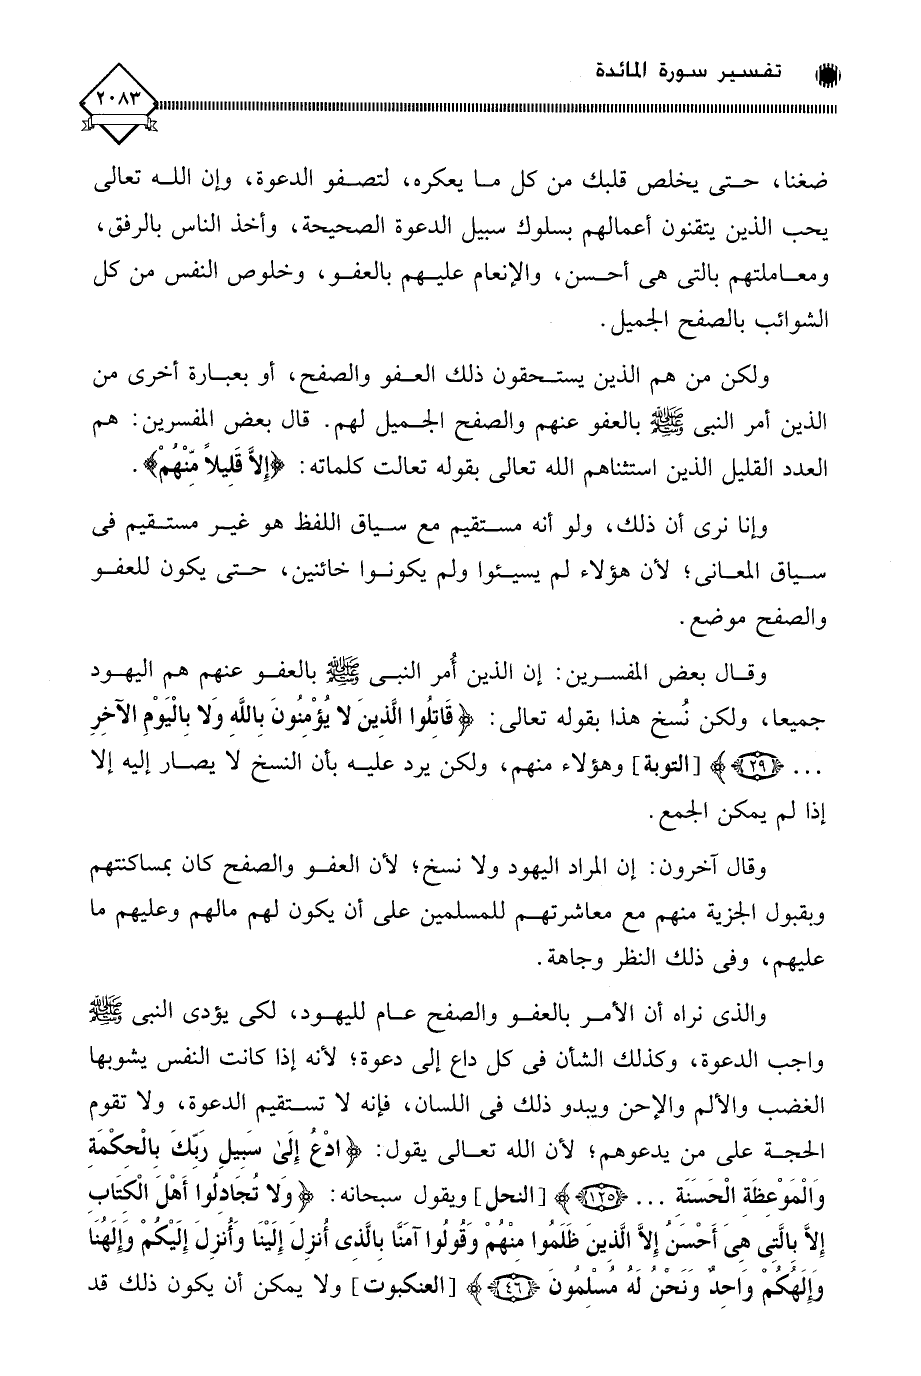 تفسير سورة المائدة
٢٠٨٣
ضغنا، حتى يخلص قلبك من كل ما يعكره، لتصفو الدعوة، وإن الله تعالى
يحب الذين يتقنون أعمالهم بسلوك سبيل الدعوة الصحيحة، وأخذ الناس بالرفق،
ومعاملتهم بالتى هى أحسن، والإنعام عليهم بالعفو، وخلوص النفس من كل
الشوائب بالصفح الجميل.
ولكن من هم الذين يستحقون ذلك العفو والصفح، أو بعبارة أخرى من
الذين أمر النبى ﷺ بالعفو عنهم والصفح الجميل لهم. قال بعض المفسرين: هم
العدد القليل الذين استثناهم الله تعالى بقوله تعالت كلماته: ﴿إِلاَّ قَلِيلاً مِّنْهُمْ﴾.
وإنا نرى أن ذلك، ولو أنه مستقيم مع سياق اللفظ هو غير مستقيم فى
سياق المعانى؛ لأن هؤلاء لم يسيئوا ولم يكونوا خائنين، حتى يكون للعفو
والصفح موضع.
وقال بعض المفسرين: إن الذين أُمر النبى ﷺ بالعفو عنهم هم اليهود
جميعا، ولكن نُسخ هذا بقوله تعالى: ﴿قَاتِلُوا الَّذِينَ لا يُؤْمِنُونَ بِاللَّهِ وَلا بِالْيَوْمِ الآخِرِ
... ﴿٢٩﴾ ﴾ [التوبة] وهؤلاء منهم، ولكن يرد عليه بأن النسخ لا يصار إليه إلا
إذا لم يمكن الجمع.
وقال آخرون: إن المراد اليهود ولا نسخ؛ لأن العفو والصفح كان بمساكنتهم
وبقبول الجزية منهم مع معاشرتهم للمسلمين على أن يكون لهم مالهم وعليهم ما
عليهم، وفى ذلك النظر وجاهة.
والذى نراه أن الأمر بالعفو والصفح عام لليهود، لكى يؤدى النبى ﷺ
واجب الدعوة، وكذلك الشأن فى كل داع إلى دعوة؛ لأنه إذا كانت النفس يشوبها
الغضب والألم والإحن ويبدو ذلك فى اللسان، فإنه لا تستقيم الدعوة، ولا تقوم
الحجة على من يدعوهم؛ لأن الله تعالى يقول: ﴿ادْعُ إِلَىٰ سَبِيلِ رَبِّكَ بِالْحِكْمَةِ
وَالْمَوْعِظَةِ الْحَسَنَةِ ... ﴿١٢٥﴾ ﴾ [النحل] ويقول سبحانه: ﴿وَلا تُجَادِلُوا أَهْلَ الْكِتَابِ
إِلاَّ بِالَّتِى هِىَ أَحْسَنُ إِلاَّ الَّذِينَ ظَلَمُوا مِنْهُمْ وَقُولُوا آمَنَّا بِالَّذِى أُنزِلَ إِلَيْنَا وَأُنزِلَ إِلَيْكُمْ وَإِلَهُنَا
وَإِلَهُكُمْ وَاحِدٌ وَنَحْنُ لَهُ مُسْلِمُونَ ﴿٤٦﴾ ﴾ [العنكبوت] ولا يمكن أن يكون ذلك قد